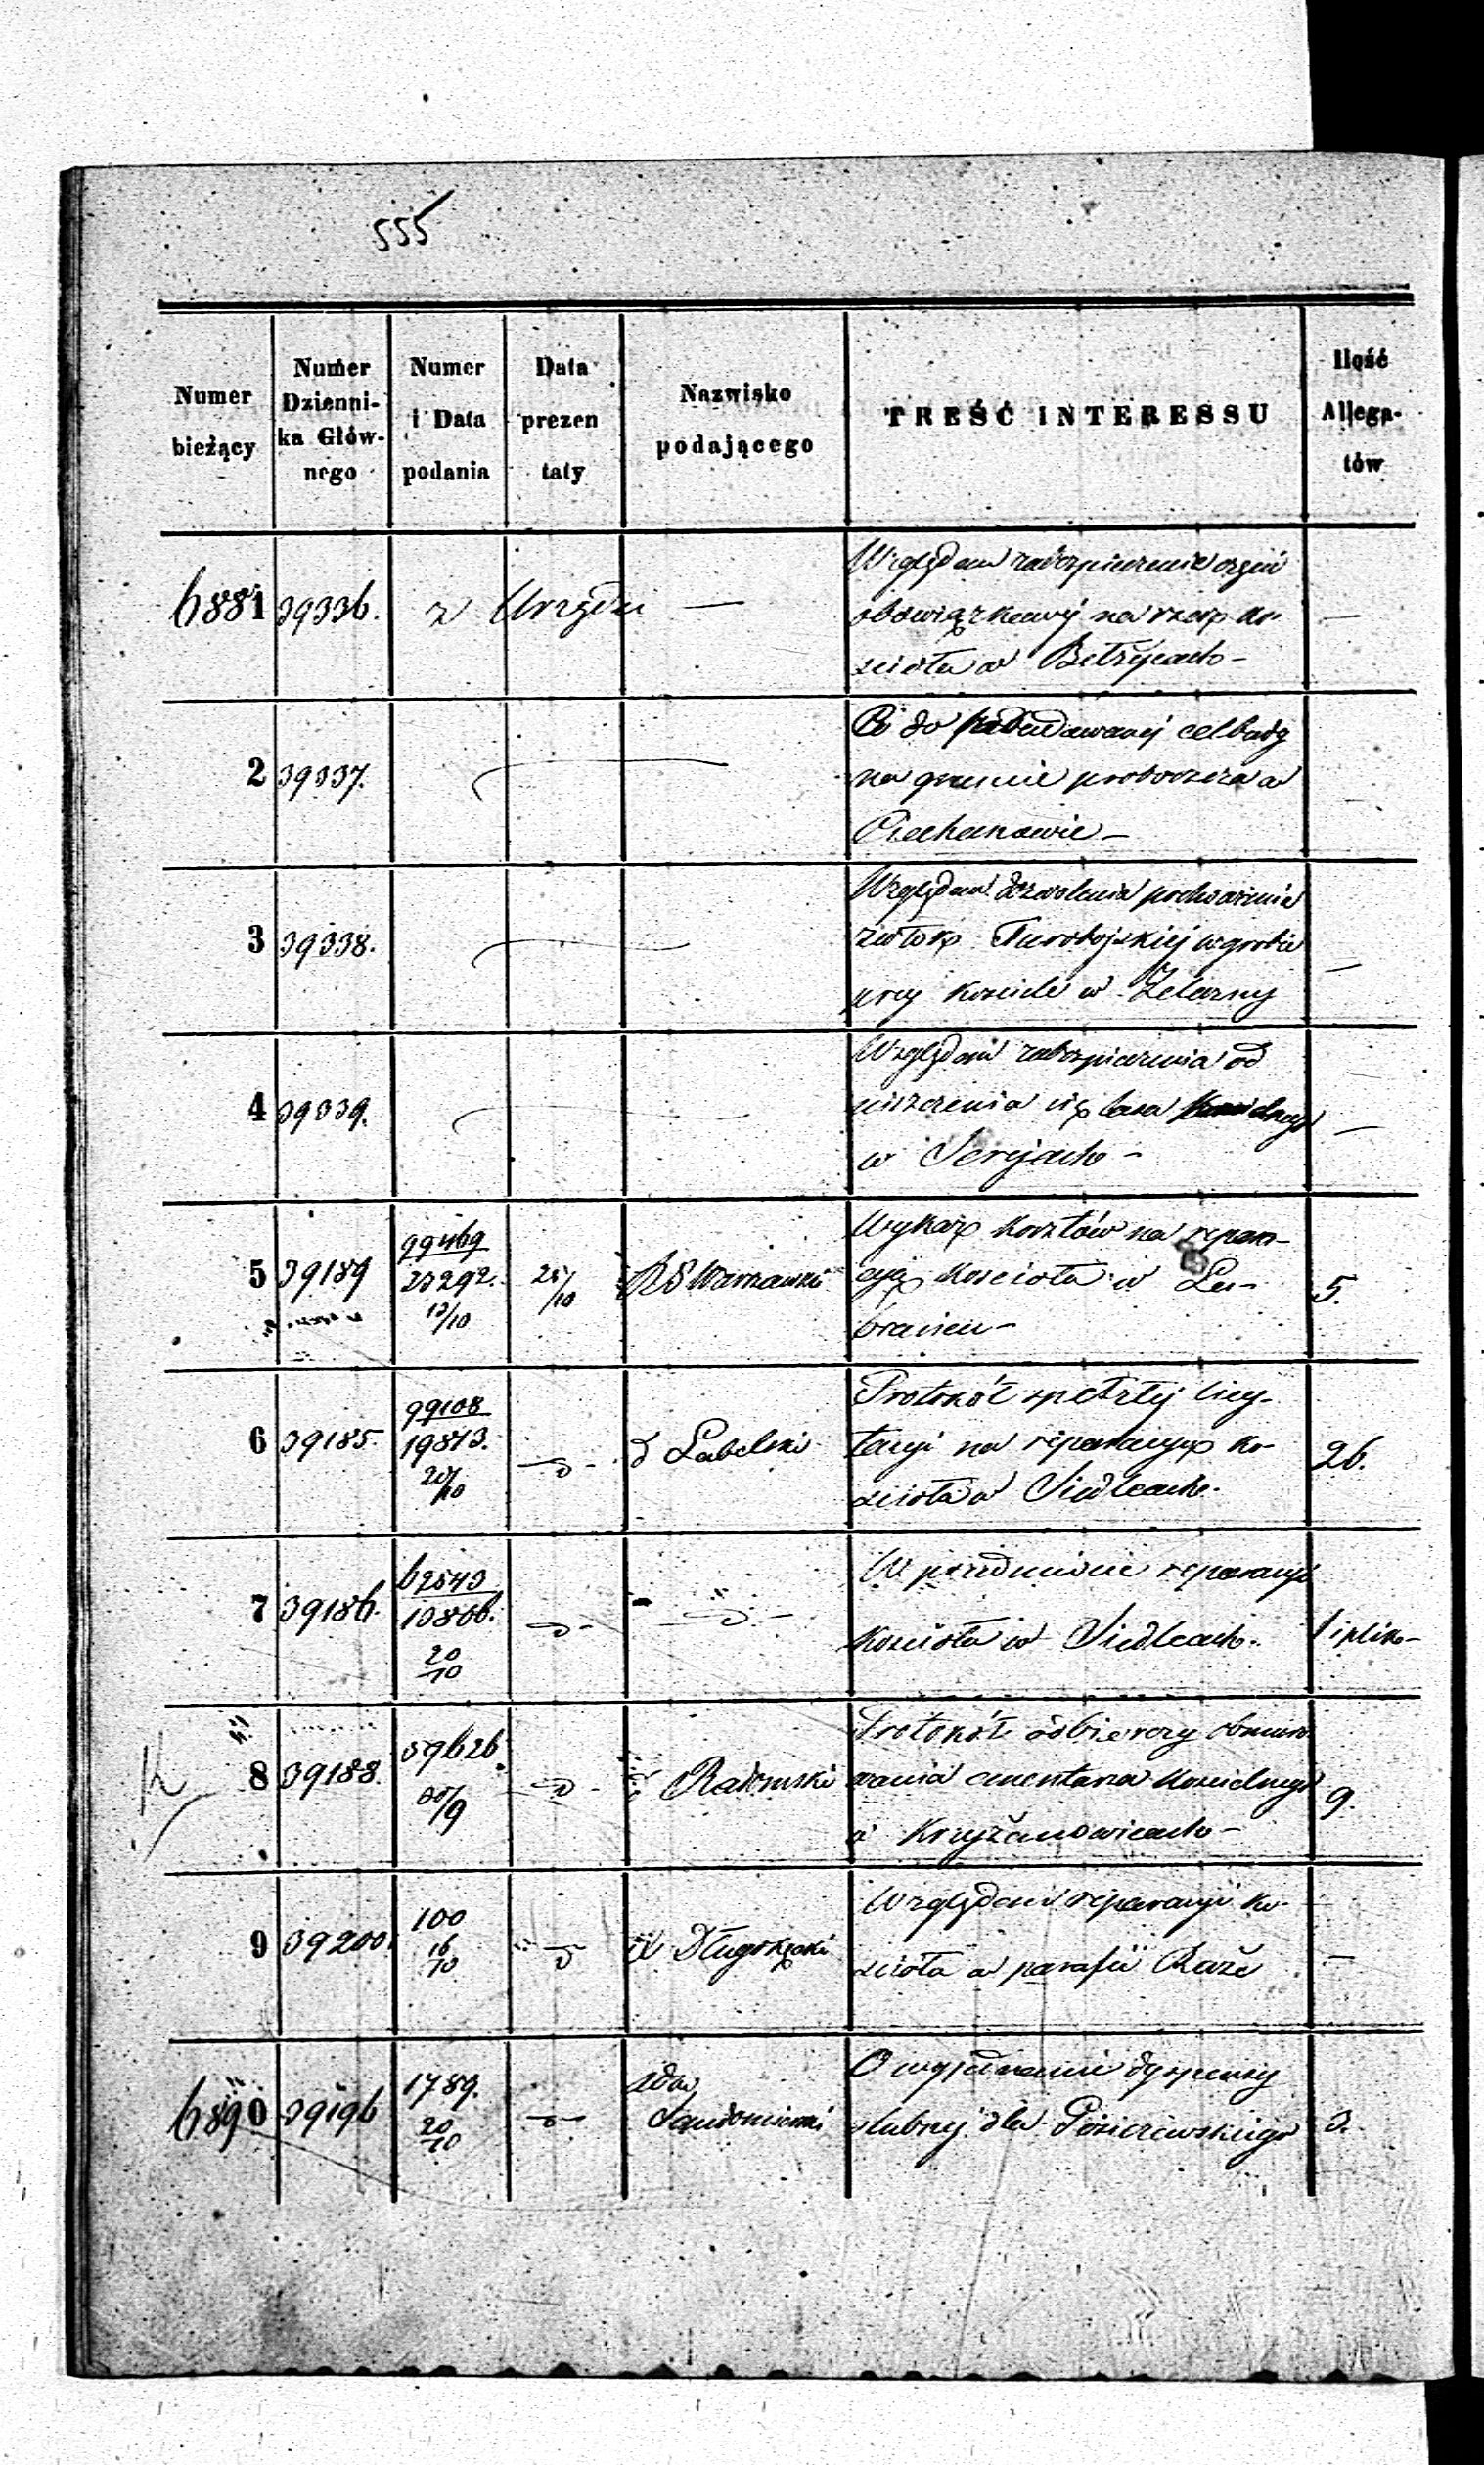 555
Numer bieżący
Numer Dzienni- ka Głów- nego
Numer i Data podania
Data prezen taty
Nazwisko podającego
TREŚĆ INTERESSU
Ilość Allega- tów
6881 39336. z Urzędu —
Względem zabezpieczenia
obowiązkowej na rzecz ko
ścioła w —
2 39337.
Co do zabudowanej
na gruncie proboszcza w
Ciechanowie —
3 39338.
Względem dozwolenia pochowania
zwłok Turobojskiej w grobie
przy kościele w Żelazny —
4 39339.
Względem zabezpieczenia od
niszczenia się lasa
w Serejach — —
5 39189 99469 23292. 13/10 25/10 RG Warszawski
Wykaz kosztów na repara-
cyją kościoła w Lu-
branicu — 5.
6 39185. 99108 19813. 20/10 — d — d Lubelski
Protokół spełzłej licy-
tacyi na reparacyą ko-
ścioła w Siedlcach. 26.
7 39186. 62543 10866. 20/10 — d — — d —
W przedmiocie reparacyi
kościoła w Siedlcach. 1 i plik —
8 39188. 59626. 30/9 — d — d Radomski
Protokół odbiorczy obmuro
wania cmentarza kościelnego
w Krzyżanowicach — 9.
9 39200. 100 16/10 — d — X Długołęcki
Względem reparacyi ko-
ścioła w parafii Róże —
6890 39196 1789. 20/10 — d — Adm Sandomierski
O wyjednanie dyspensy
ślubnej dla 3.